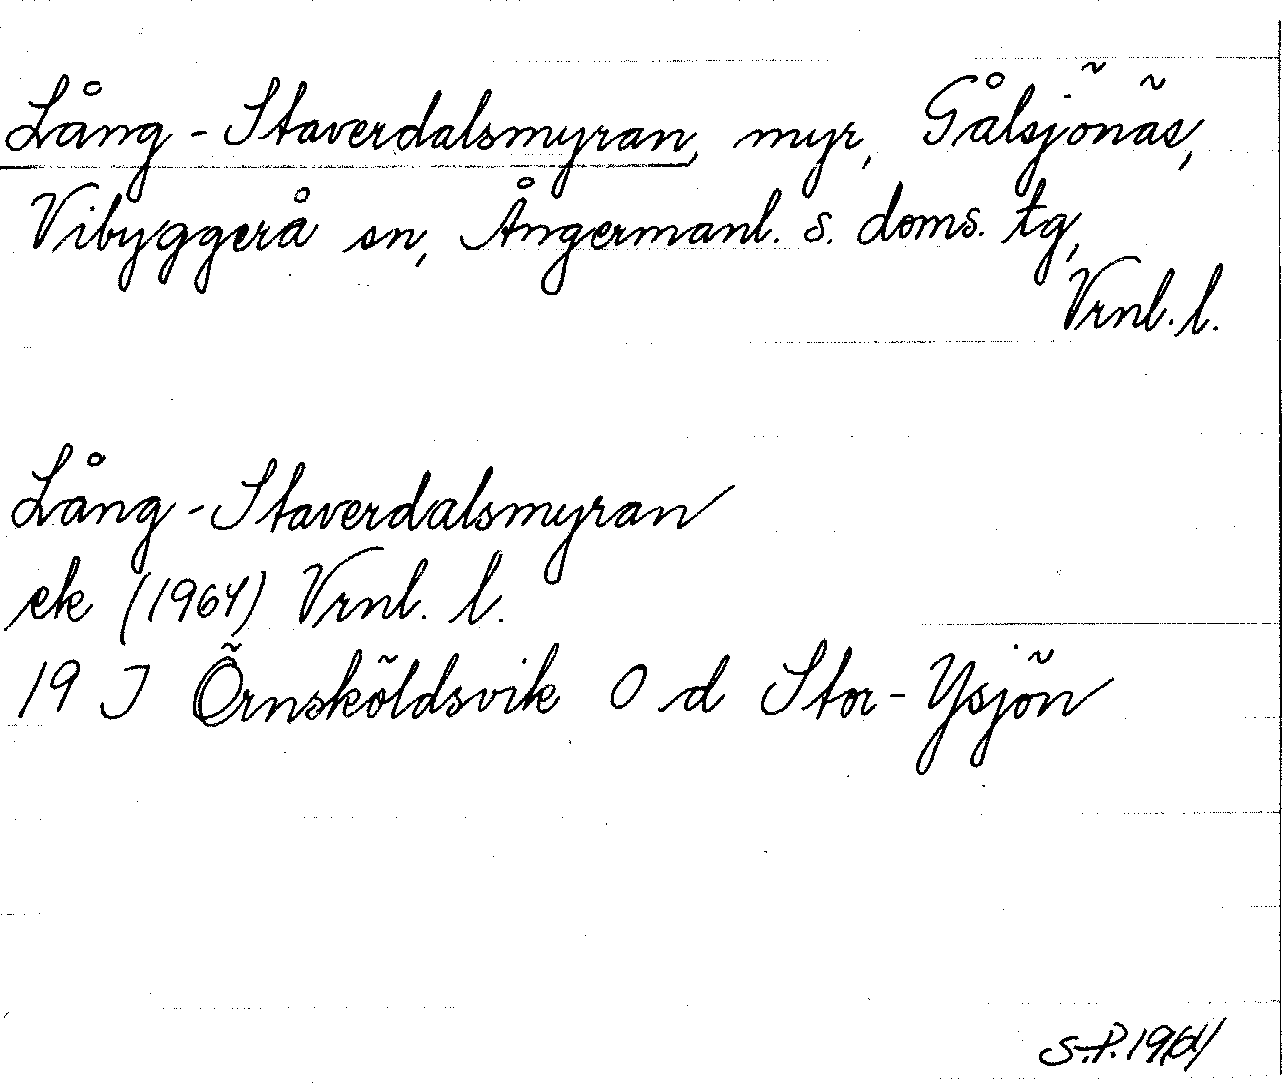 Lång-Staverdalsmyran, myr, Gålsjönäs,
Vibyggerå sn, Ångermanl. s. doms. tg,
Vrnl. l.
Lång-Staverdalsmyran
ek (1964) Vrnl. l.
19 J Örnsköldsvik O d Stor-Ysjön
S.P. 1964